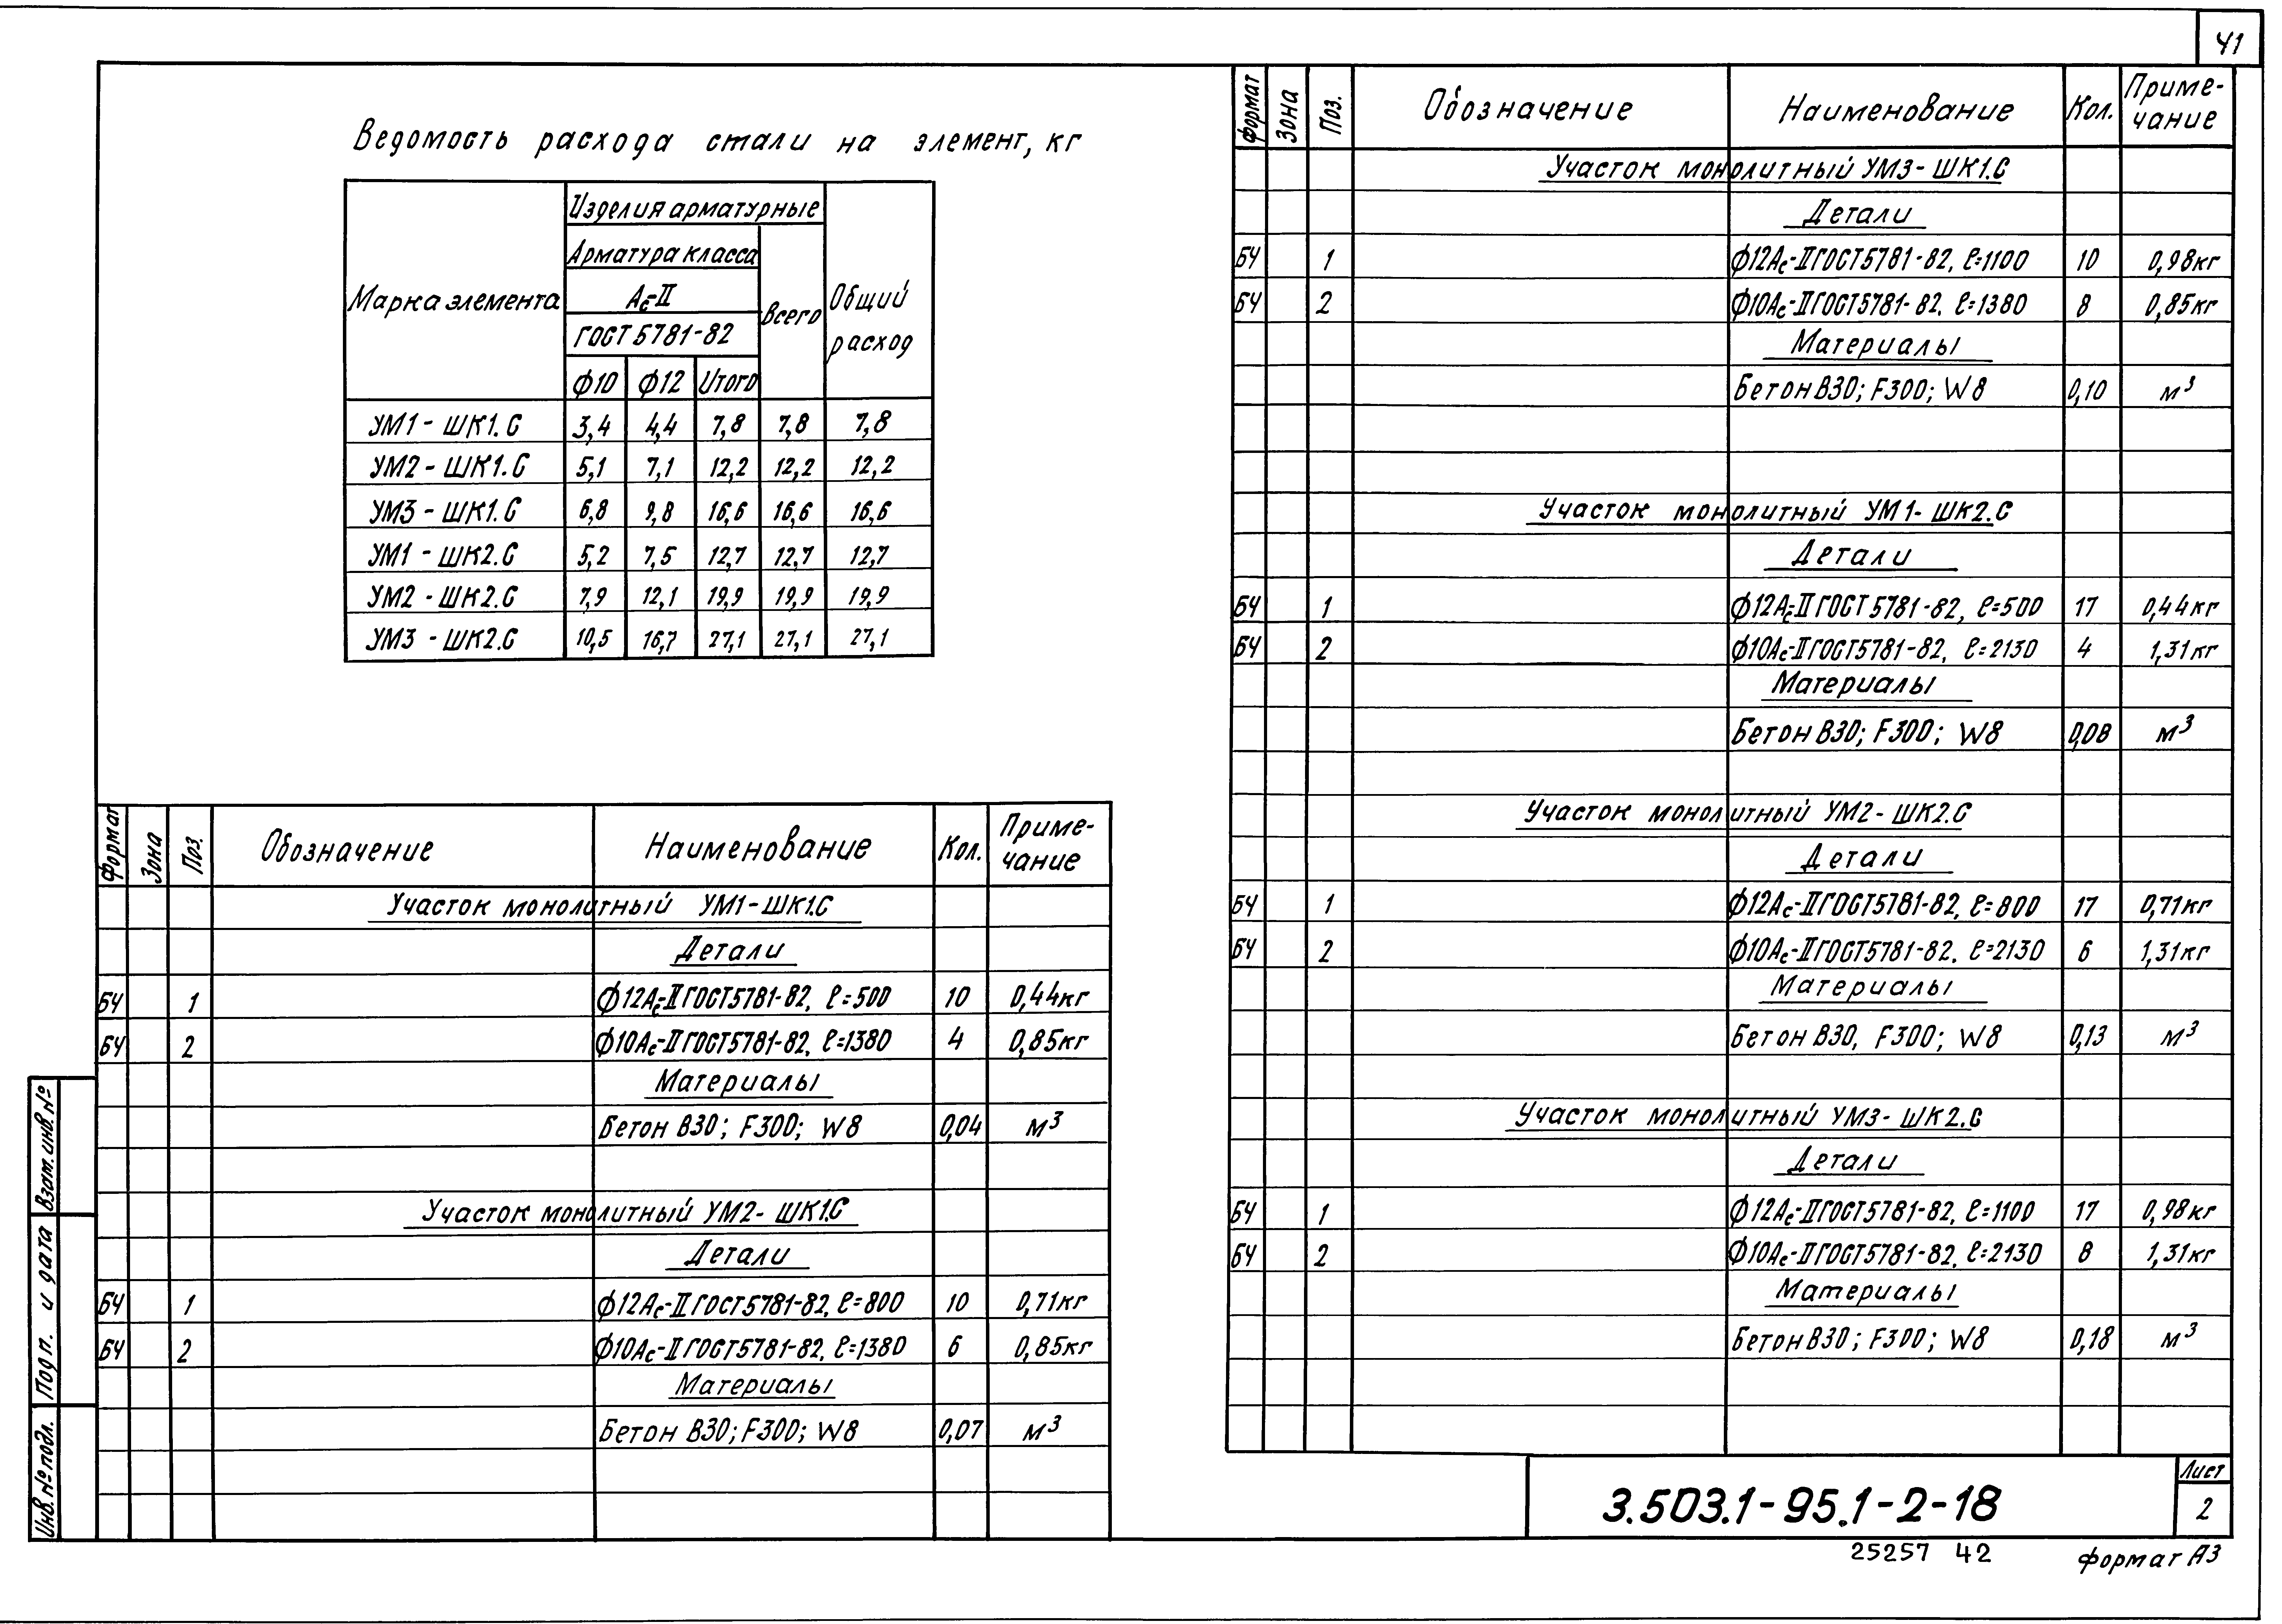 41
Ведомость расхода стали на элемент, кг
Марка элемента
Изделия арматурные
Арматура класса
Ас-II
ГОСТ 5781-82
Всего
Общий расход
Ф10 Ф12 Итого
УМ1-ШК1.С 3,4 4,4 7,8 7,8 7,8
УМ2-ШК1.С 5,1 7,1 12,2 12,2 12,2
УМ3-ШК1.С 6,8 9,8 16,6 16,6 16,6
УМ1-ШК2.С 5,2 7,5 12,7 12,7 12,7
УМ2-ШК2.С 7,9 12,1 19,9 19,9 19,9
УМ3-ШК2.С 10,5 16,7 27,1 27,1 27,1
Формат Зона Поз. Обозначение Наименование Кол. Приме-
чание
Участок монолитный УМ1-ШК1.С
Детали
БЧ 1 Ф12Ас-II ГОСТ5781-82, ℓ=500 10 0,44кг
БЧ 2 Ф10Ас-II ГОСТ5781-82, ℓ=1380 4 0,85кг
Материалы
Бетон В30; F300; W8 0,04 м³
Участок монолитный УМ2-ШК1.С
Детали
БЧ 1 Ф12Ас-II ГОСТ5781-82, ℓ=800 10 0,71кг
БЧ 2 Ф10Ас-II ГОСТ5781-82, ℓ=1380 6 0,85кг
Материалы
Бетон В30; F300; W8 0,07 м³
Формат Зона Поз. Обозначение Наименование Кол. Приме-
чание
Участок монолитный УМ3-ШК1.С
Детали
БЧ 1 Ф12Ас-II ГОСТ5781-82, ℓ=1100 10 0,98кг
БЧ 2 Ф10Ас-II ГОСТ5781-82, ℓ=1380 8 0,85кг
Материалы
Бетон В30; F300; W8 0,10 м³
Участок монолитный УМ1-ШК2.С
Детали
БЧ 1 Ф12Ас-II ГОСТ5781-82, ℓ=500 17 0,44кг
БЧ 2 Ф10Ас-II ГОСТ5781-82, ℓ=2130 4 1,31кг
Материалы
Бетон В30; F300; W8 0,08 м³
Участок монолитный УМ2-ШК2.С
Детали
БЧ 1 Ф12Ас-II ГОСТ5781-82, ℓ=800 17 0,71кг
БЧ 2 Ф10Ас-II ГОСТ5781-82, ℓ=2130 6 1,31кг
Материалы
Бетон В30, F300; W8 0,13 м³
Участок монолитный УМ3-ШК2.С
Детали
БЧ 1 Ф12Ас-II ГОСТ5781-82, ℓ=1100 17 0,98кг
БЧ 2 Ф10Ас-II ГОСТ5781-82, ℓ=2130 8 1,31кг
Материалы
Бетон В30; F300; W8 0,18 м³
Взам. инв. №
Подп. и дата
Инв. № подл.
3.503.1-95.1-2-18
Лист
2
25257 42
Формат А3